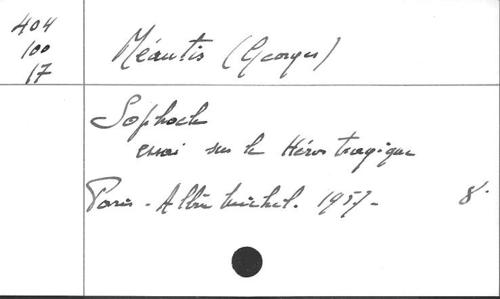 404
100
17
Méautis (Georges)
Sophocle
essai sur le Héros tragique
Paris - Albin Michel. 1957 - 8°